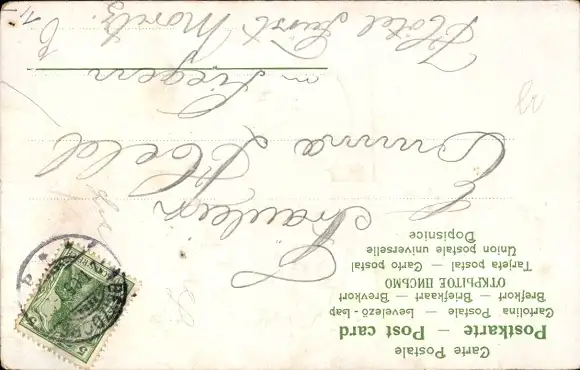 Carte Postale
Postkarte — Post card
Cartolina Postale — Levelező-Lap
Brefkort — Briefkaart — Brevkort
ОТКРЫТОЕ ПИСЬМО
Tarjeta postal — Carto postal
Union postale universelle
Dopisnice
Fräulein
Emma Held
in Siegen
Hôtel Fürst Moritz.
5
5